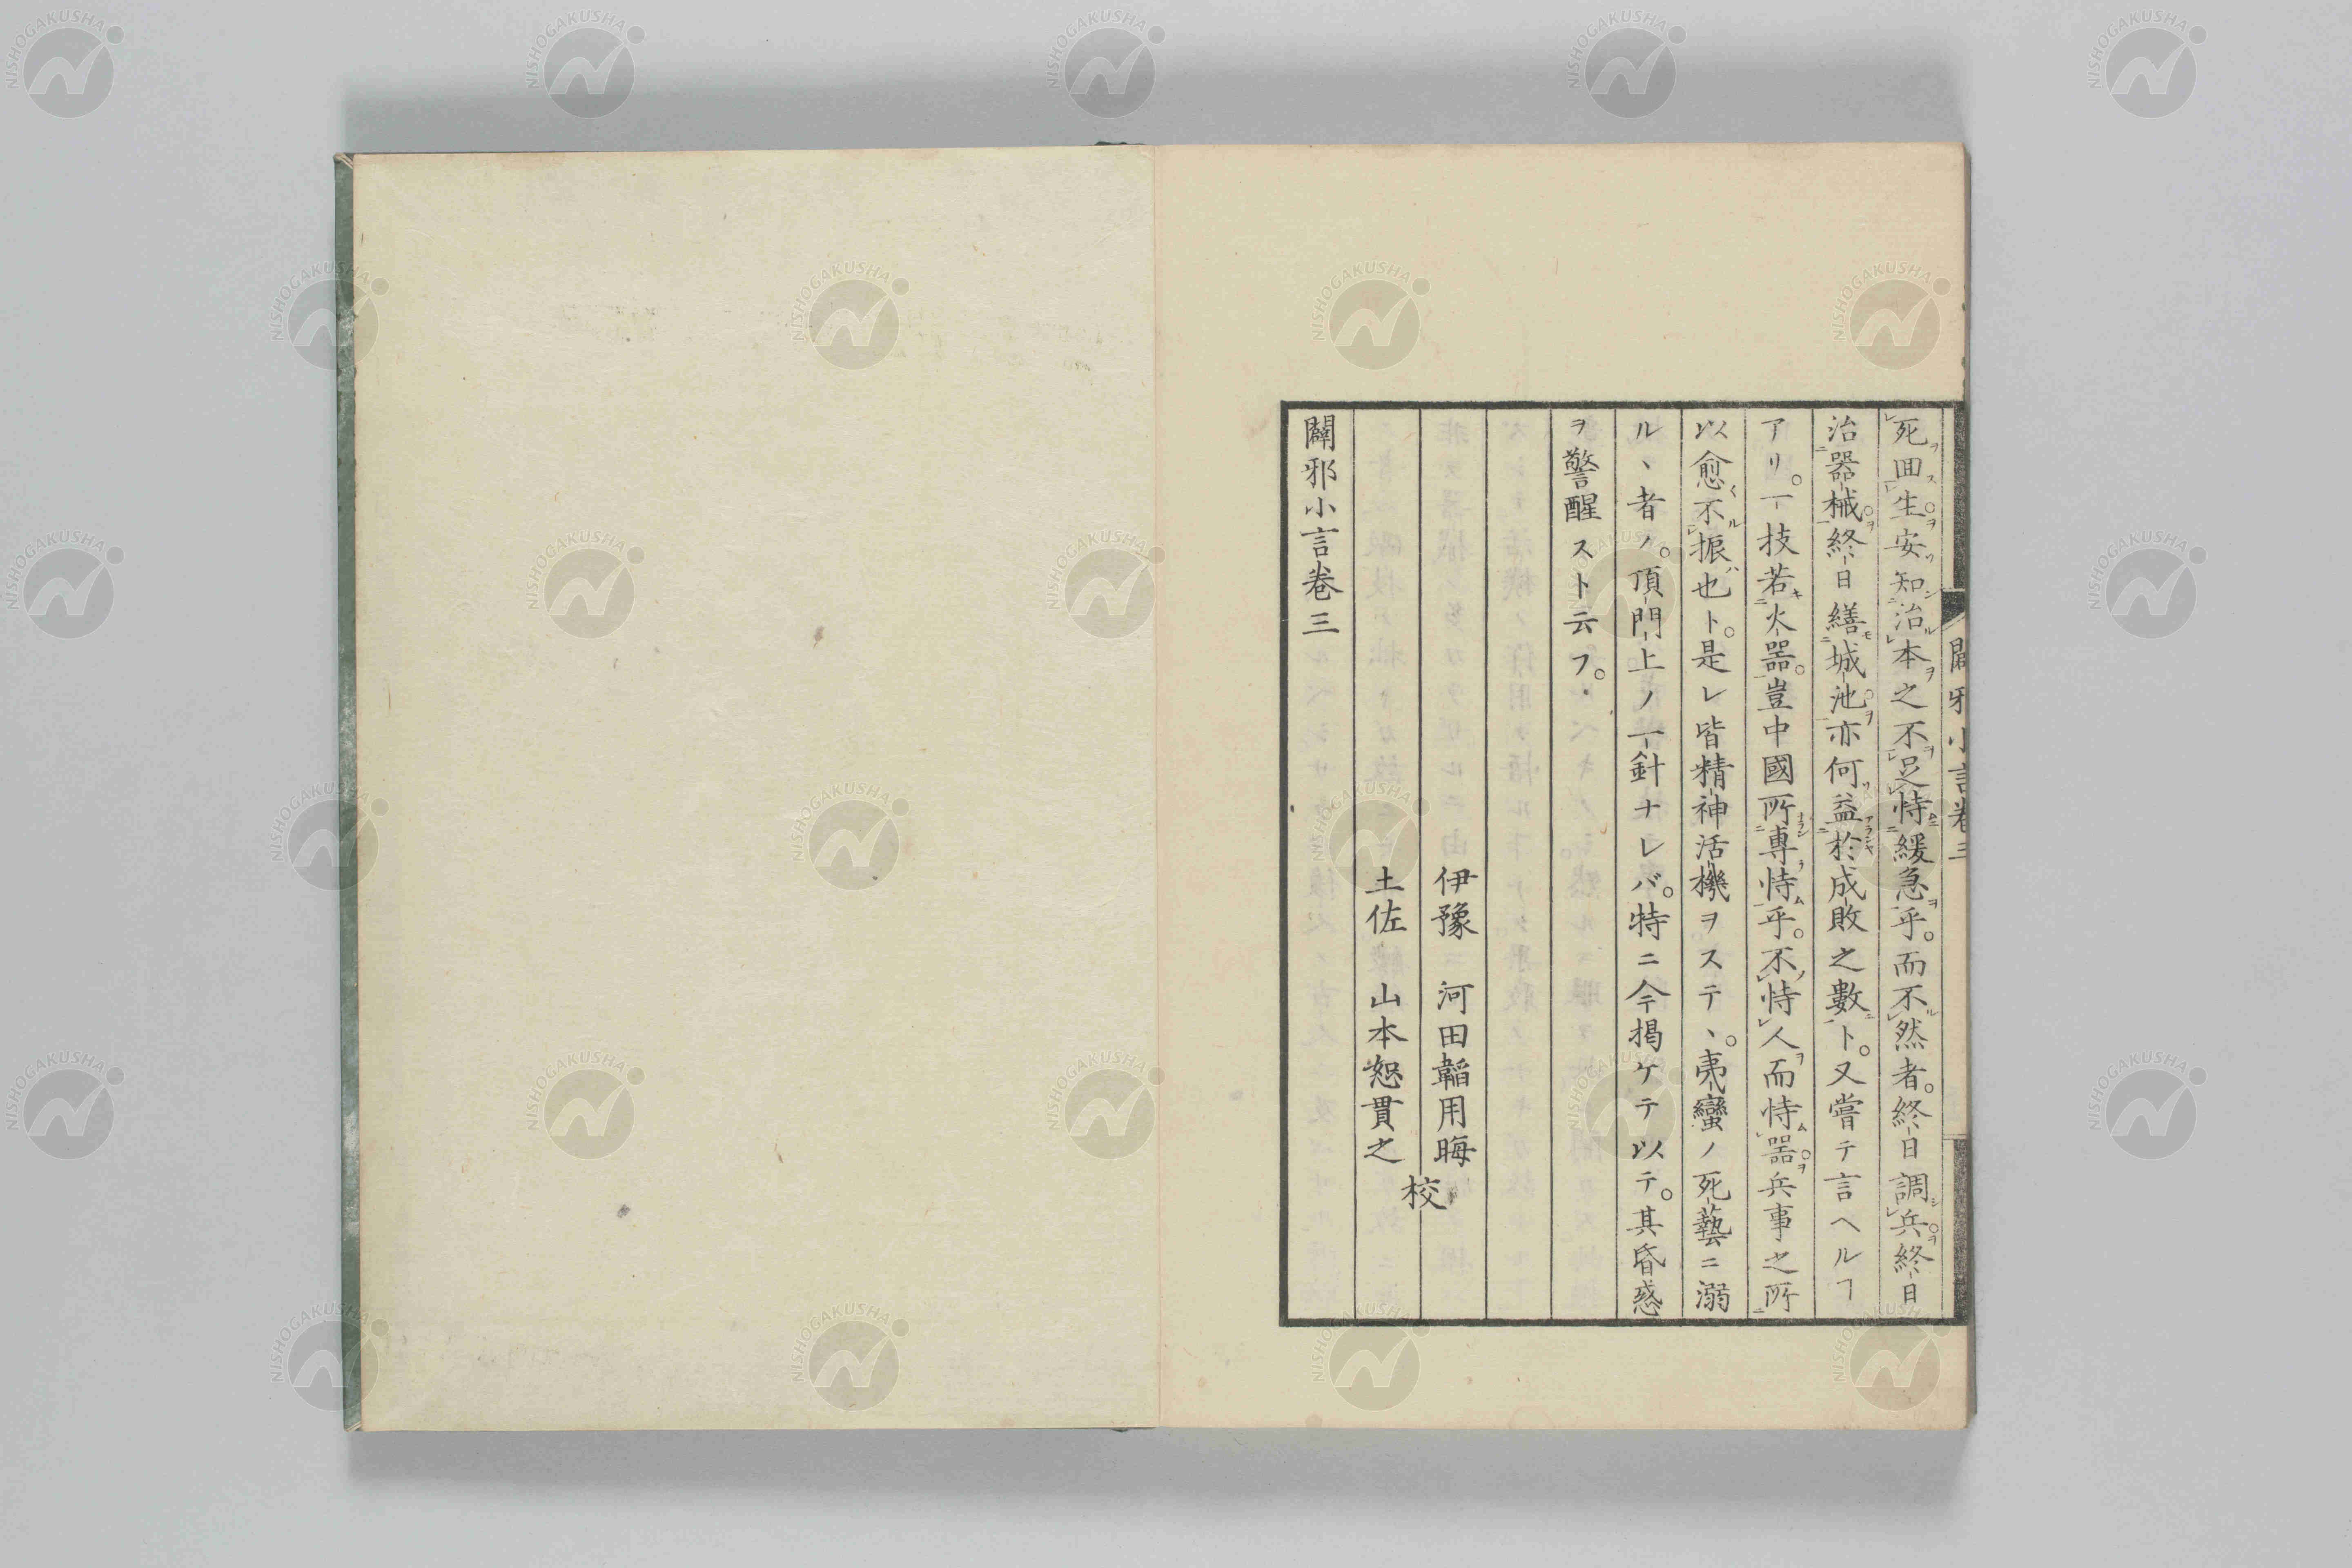 死囬生安知治本之不足恃緩急乎。而不然者。終日調兵終日
治器械終日繕城池亦何益於成敗之數ト。又嘗テ言ヘルヿ
アリ。一技若火器。豈中國所專恃乎。不恃人而恃器兵事之所
以愈不振也ト。是レ皆精神活機ヲステヽ。夷蠻ノ死藝ニ溺
ルヽ者ノ。頂門上ノ一針ナレバ。特ニ今掲ケテ以テ。其昏惑
ヲ警醒スト云フ。
伊豫 河田韜用晦
土佐 山本恕貫之
校
闢邪小言卷三
闢邪小言卷三
NISHOGAKUSHA